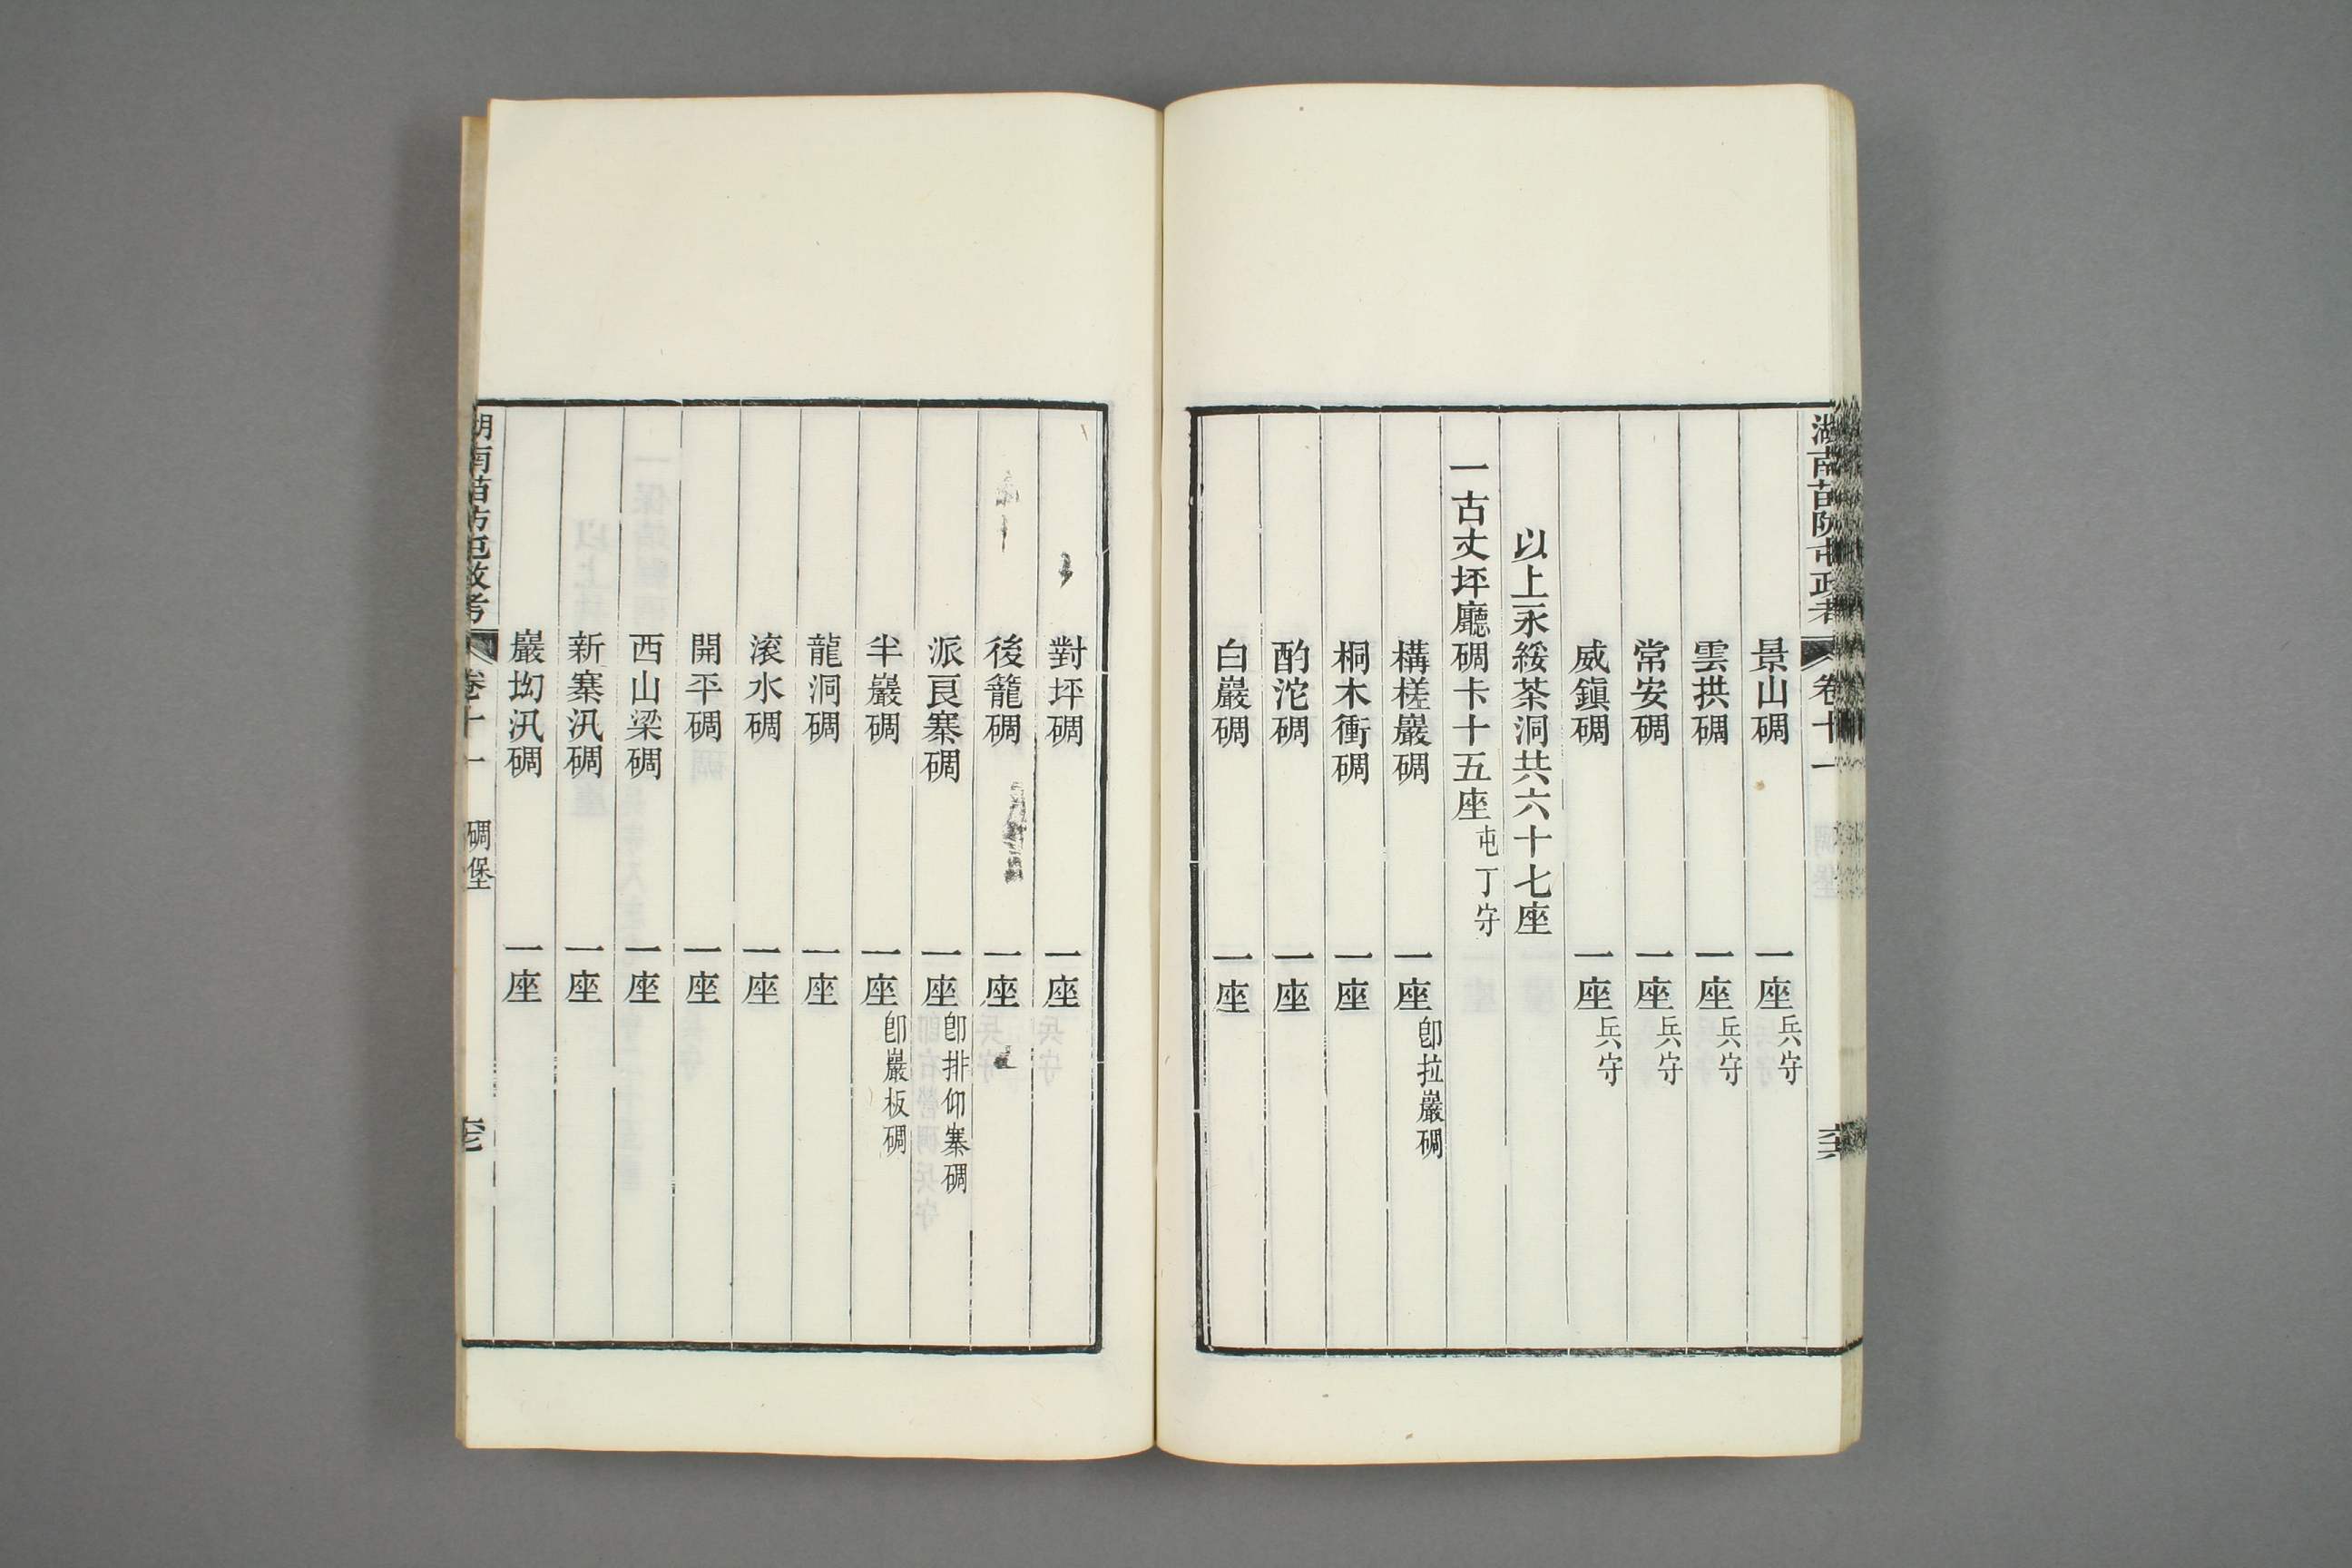 湖南苗防屯政考 卷十一 碉堡
景山碉 一座 兵守
雲拱碉 一座 兵守
常安碉 一座 兵守
威鎮碉 一座 兵守
以上永綏茶洞共六十七座
一古丈坪廳碉卡十五座 屯丁守
構槎巖碉 一座 卽拉巖碉
桐木衝碉 一座
酌沱碉 一座
白巖碉 一座
對坪碉 一座
後籠碉 一座
派㫐寨碉 一座 卽排仰寨碉
半巖碉 一座 卽巖板碉
龍洞碉 一座
滚水碉 一座
開平碉 一座
西山梁碉 一座
新寨汛碉 一座
巖坳汛碉 一座
湖南苗防屯政考 卷十一 碉堡